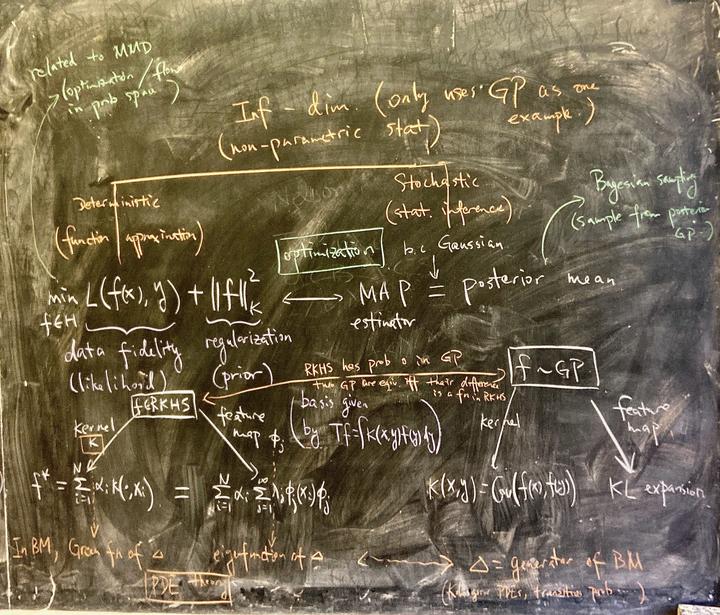 related to MMD
(optimization / flow
in prob space)
Inf-dim. (only uses GP as one
example.)
(non-parametric stat)
Deterministic
(function approximation)
Stochastic
(stat. inference)
Bayesian sampling
(sample from posterior
GP...)
optimization
b.c Gaussian
min L(f(x), y) + ||f||²_K ⟷ MAP = posterior mean
f∈H
estimator
data fidelity
(likelihood)
regularization
(prior)
RKHS has prob 0 in GP
two GP are equiv iff their difference
is a fn in RKHS
f∈RKHS
f ~ GP
kernel
K
feature
map ϕ_j
(basis given
by Tf=∫K(x,y)f(y)dy)
kernel
feature
map
f* = Σ_{i=1}^N α_i K(·,x_i) = Σ_{i=1}^N α_i Σ_{j=1}^∞ λ_j ϕ_j(x_i) ϕ_j
K(x,y) = Cov(f(x), f(y))
KL expansion
In BM, Green fn of Δ
eigenfunction of Δ
⟷ Δ = generator of BM
PDE theory
(Kolmogorov PDEs, transition prob...)